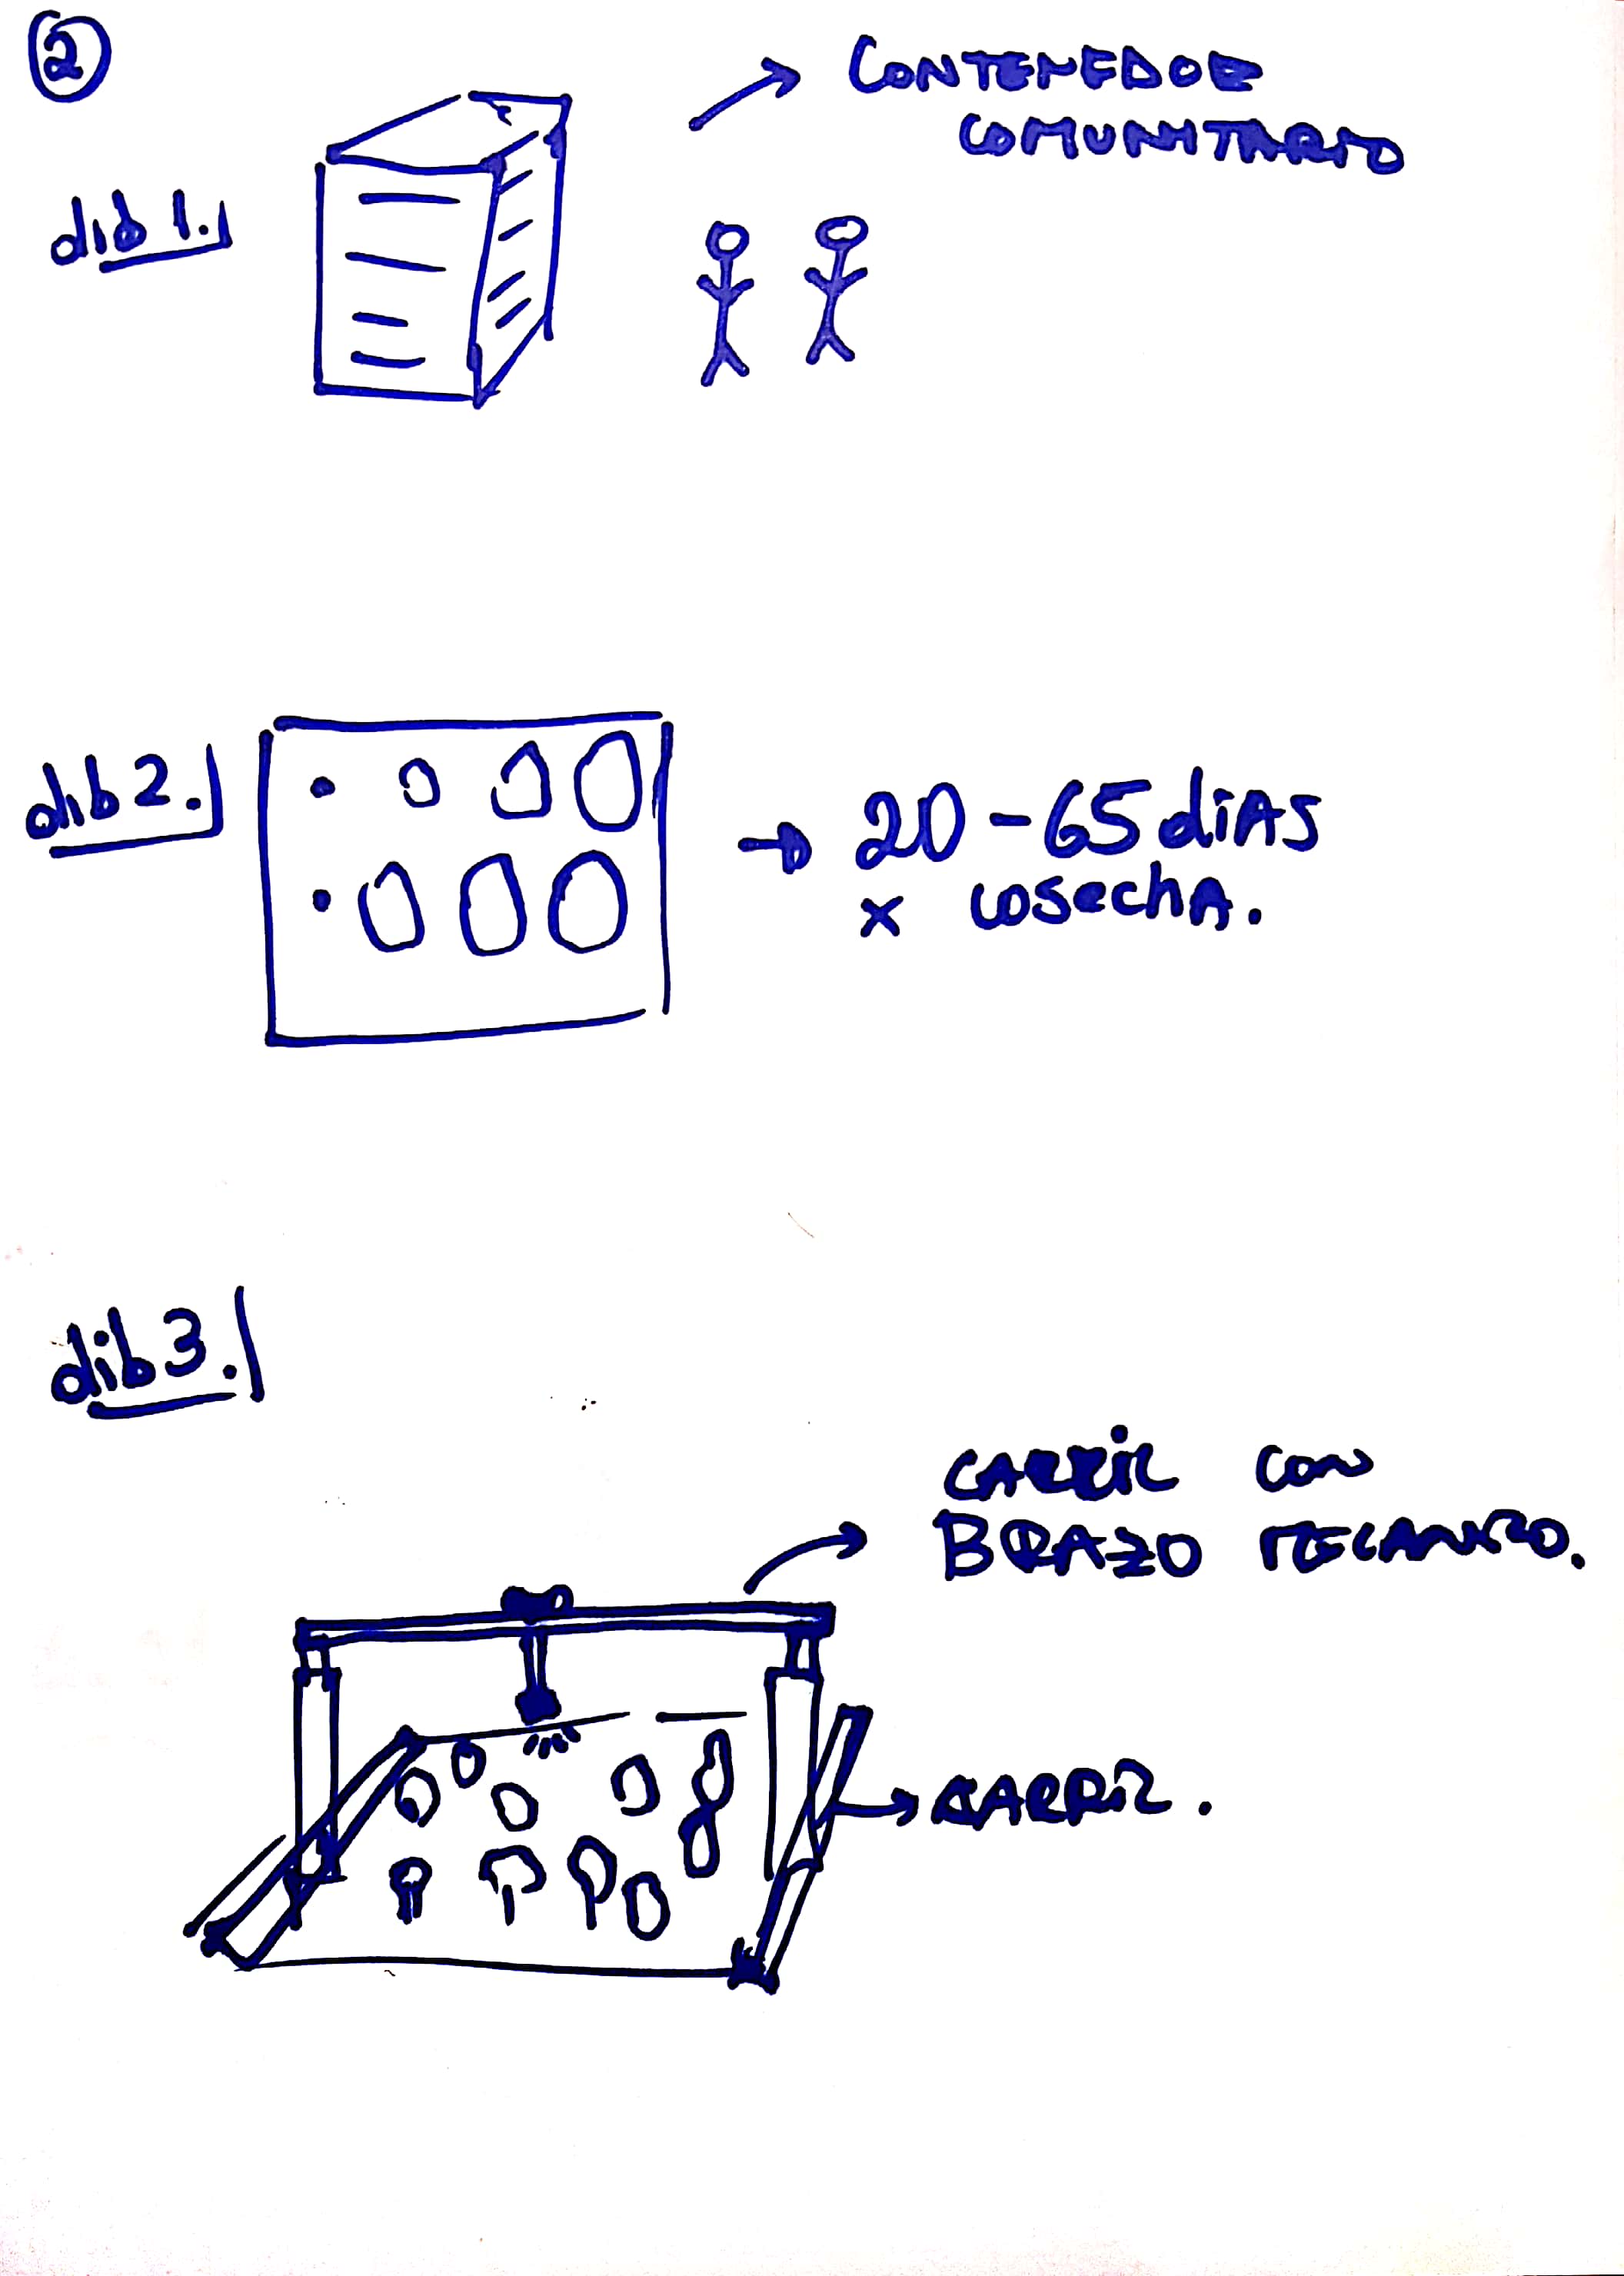 2
CONTENEDOR
COMUNITARIO
dib 1.
dib 2.
20 - 65 díAS
x cosechA.
dib 3.
CARRiL con
BRAZO MECANICO.
CARRiL.